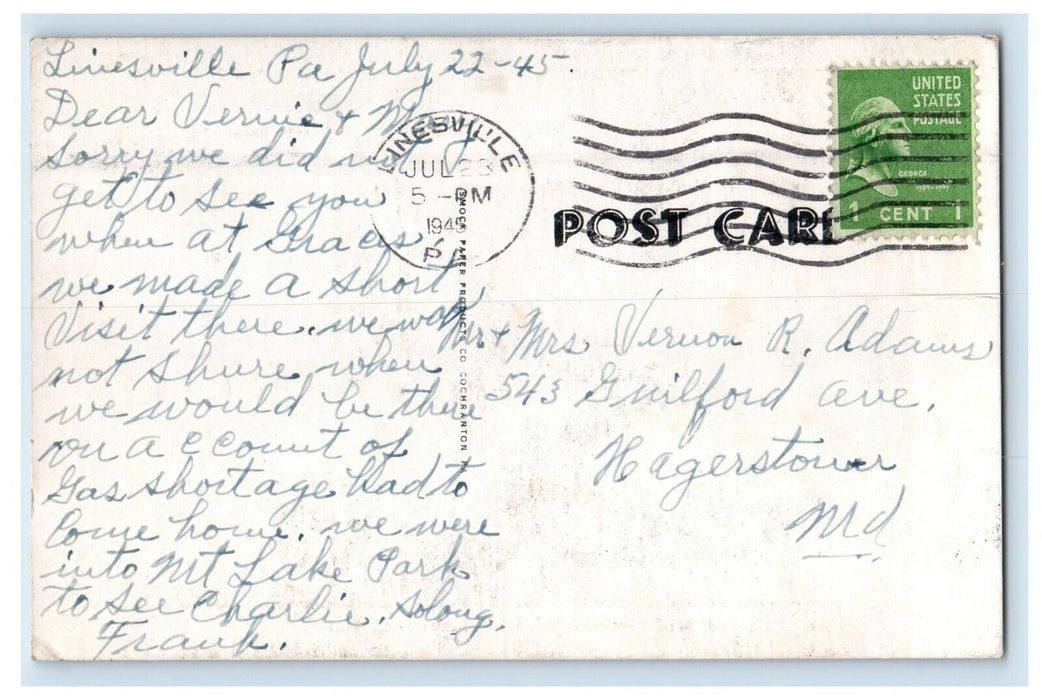 Linesville Pa July 22-45.
Dear Vernie &
Sorry we did not
get to see you
when at Graces,
we made a short
Visit there. we was
not shure when
we would be there
on account of
Gas shortage had to
Come home. we were
into Mt Lake Park
to see Charlie. So long.
Frank.
LINESVILLE
JUL 23
5 - PM
1945
PA
SMOCK PAPER PRODUCTS CO. COCHRANTON
UNITED
STATES
POSTAGE
GEORGE
1789-1797
1 CENT 1
POST CARD
Mr & Mrs Vernon R. Adams
543 Guilford ave.
Hagerstown
Md